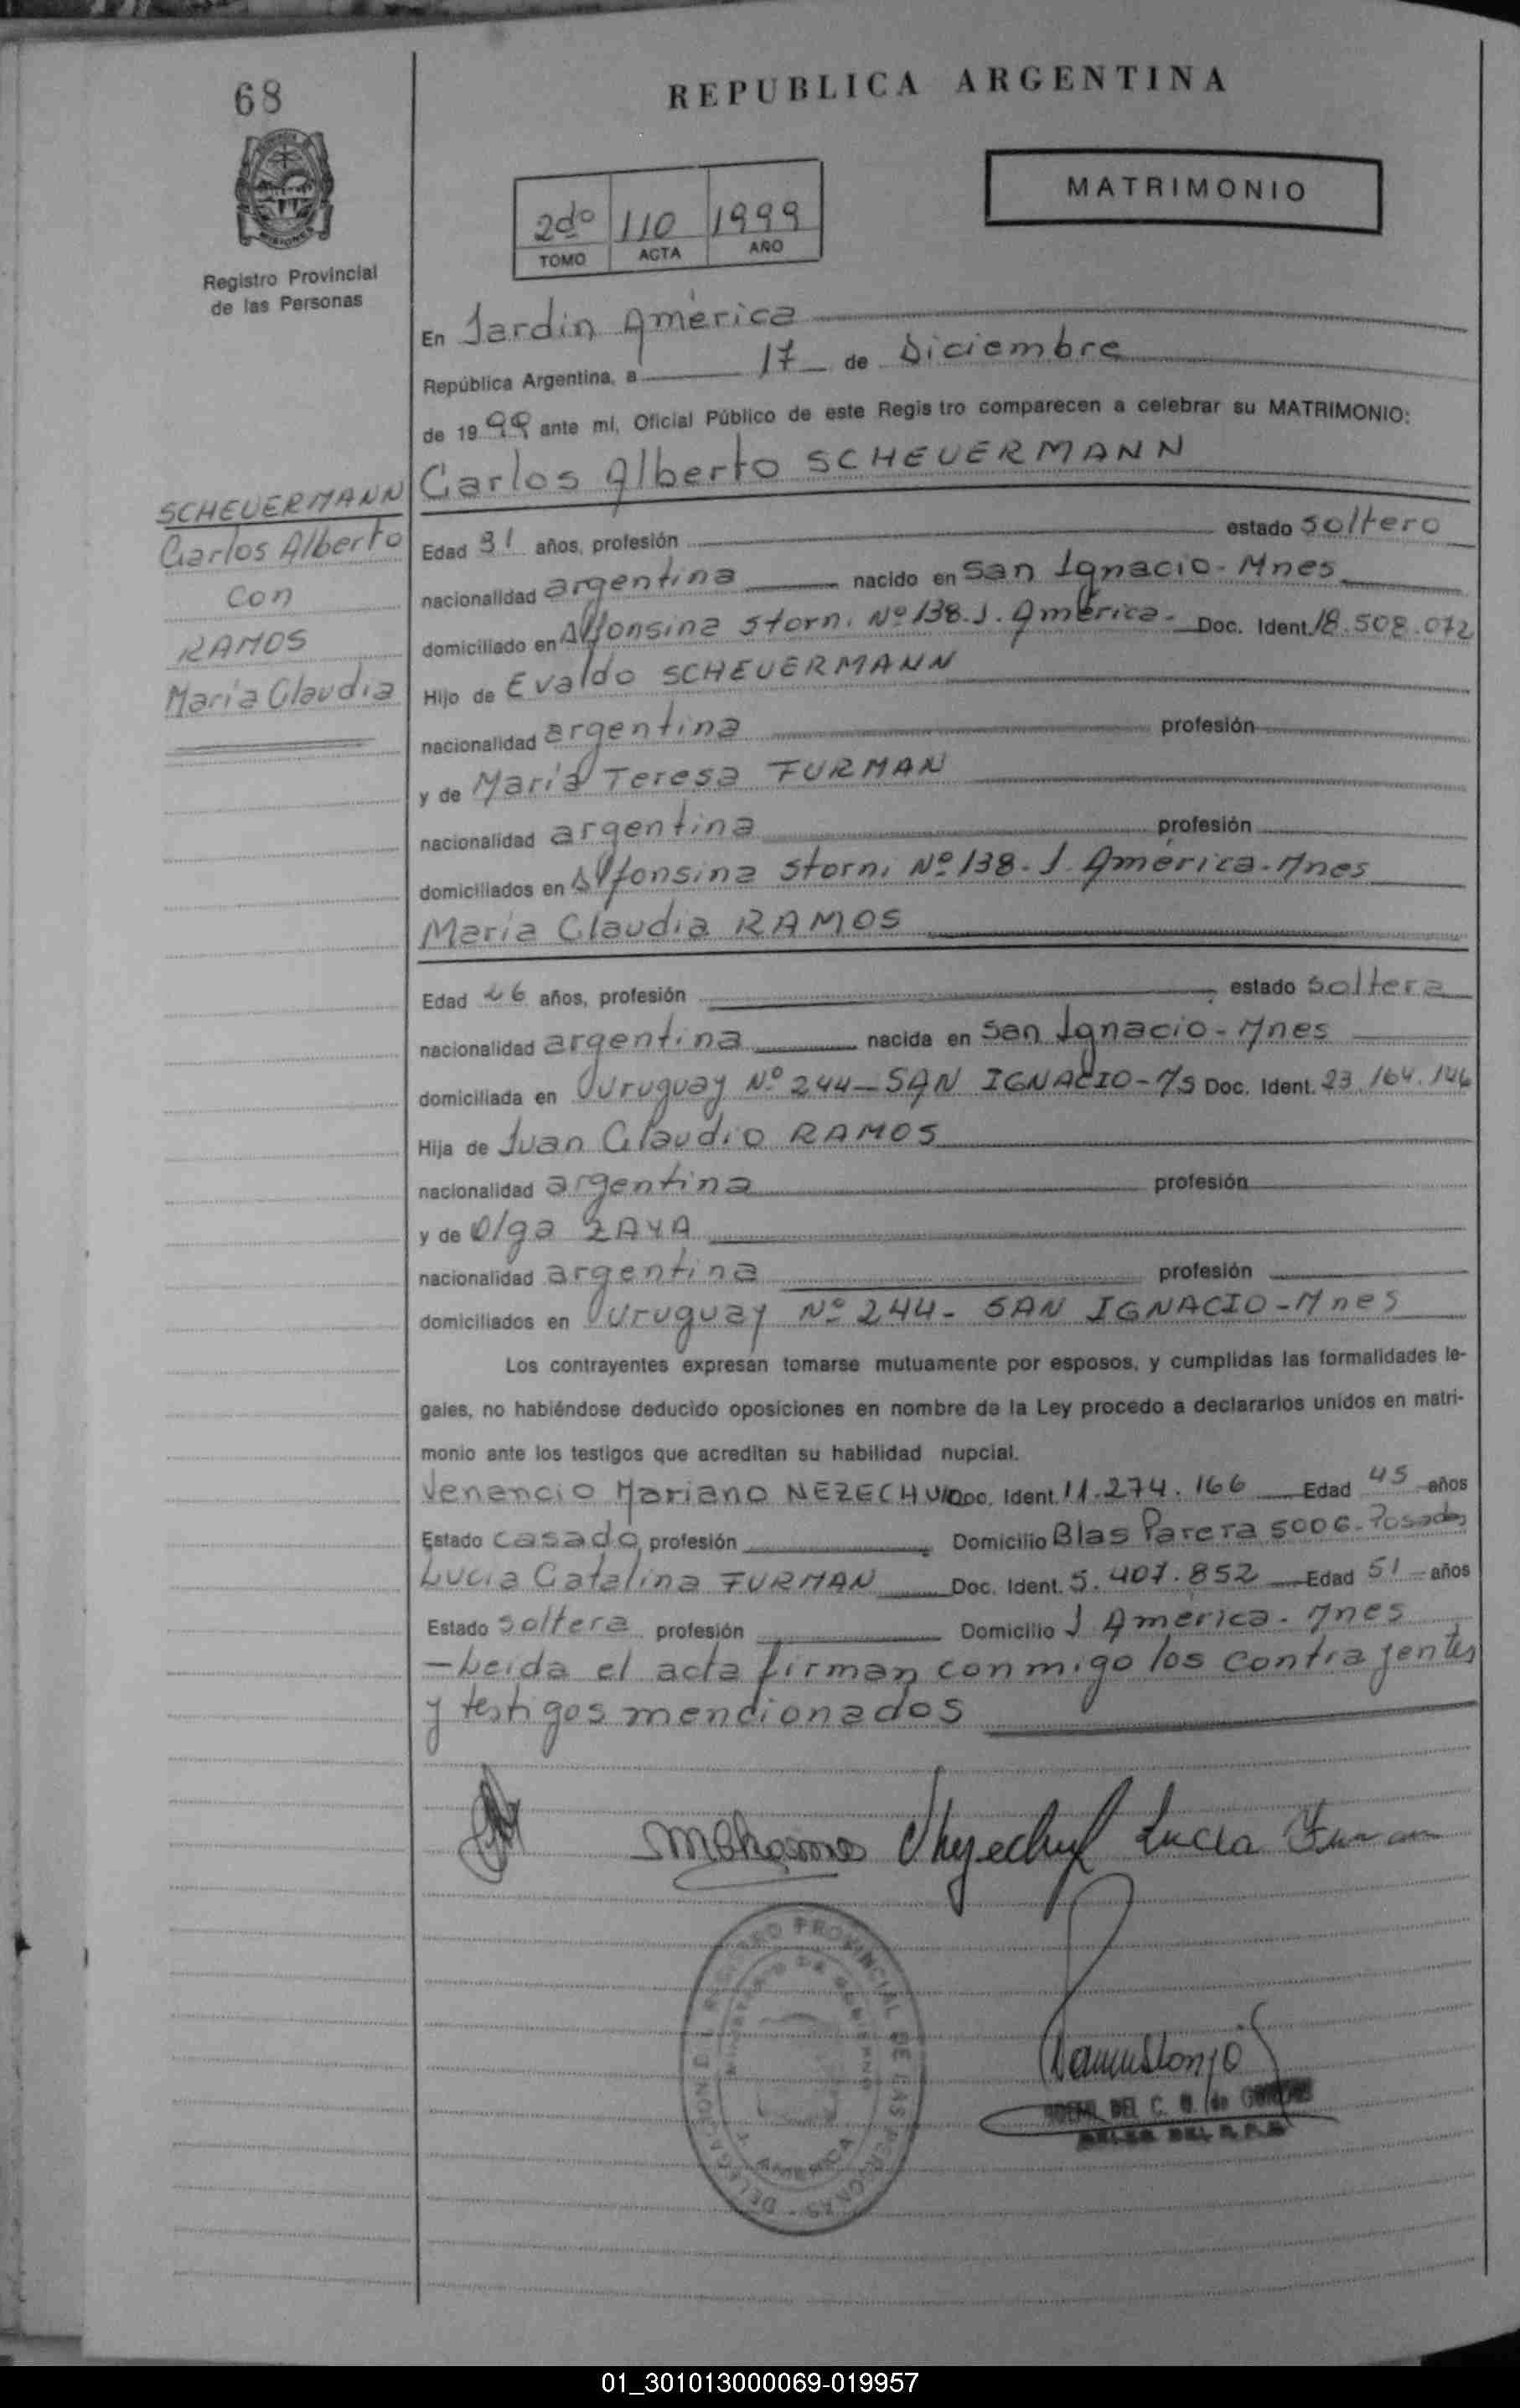 68
REPUBLICA ARGENTINA
MATRIMONIO
2do 110 1999
TOMO ACTA AÑO
Registro Provincial
de las Personas
En Jardin América
República Argentina, a 17 de Diciembre
de 1999 ante mí, Oficial Público de este Registro comparecen a celebrar su MATRIMONIO:
Carlos Alberto SCHEUERMANN
SCHEUERMANN
Carlos Alberto
con
RAMOS
Maria Claudia
Edad 31 años, profesión estado soltero
nacionalidad argentina nacido en San Ignacio - Mnes
domiciliado en Alfonsina Storni Nº 138. J. América - Doc. Ident. 18.508.072
Hijo de Evaldo SCHEUERMANN
nacionalidad argentina profesión
y de María Teresa FURMAN
nacionalidad argentina profesión
domiciliados en Alfonsina Storni Nº 138 - J. América - Mnes
María Claudia RAMOS
Edad 26 años, profesión estado soltera
nacionalidad argentina nacida en San Ignacio - Mnes
domiciliada en Uruguay Nº 244 - SAN IGNACIO - Ms Doc. Ident. 23.164.146
Hija de Juan Claudio RAMOS
nacionalidad argentina profesión
y de Olga ZAYA
nacionalidad argentina profesión
domiciliados en Uruguay Nº 244 - SAN IGNACIO - Mnes
Los contrayentes expresan tomarse mutuamente por esposos, y cumplidas las formalidades le-
gales, no habiéndose deducido oposiciones en nombre de la Ley procedo a declararlos unidos en matri-
monio ante los testigos que acreditan su habilidad nupcial.
Venancio Mariano Doc. Ident. 11.274.166 Edad 45 años
Estado casado profesión Domicilio Blas Parera 5006 - Posadas
Lucia Catalina FURMAN Doc. Ident. 5.407.852 Edad 51 años
Estado soltera profesión Domicilio J América - Mnes
- Leida el acta firman conmigo los contrayentes
y testigos mencionados
Lucia Furman
REGISTRO PROVINCIAL DE LAS PERSONAS - DELEGACION
MINISTERIO DE GOBIERNO
J. AMERICA
DEL C.
DEL R.P.P.
01_301013000069-019957